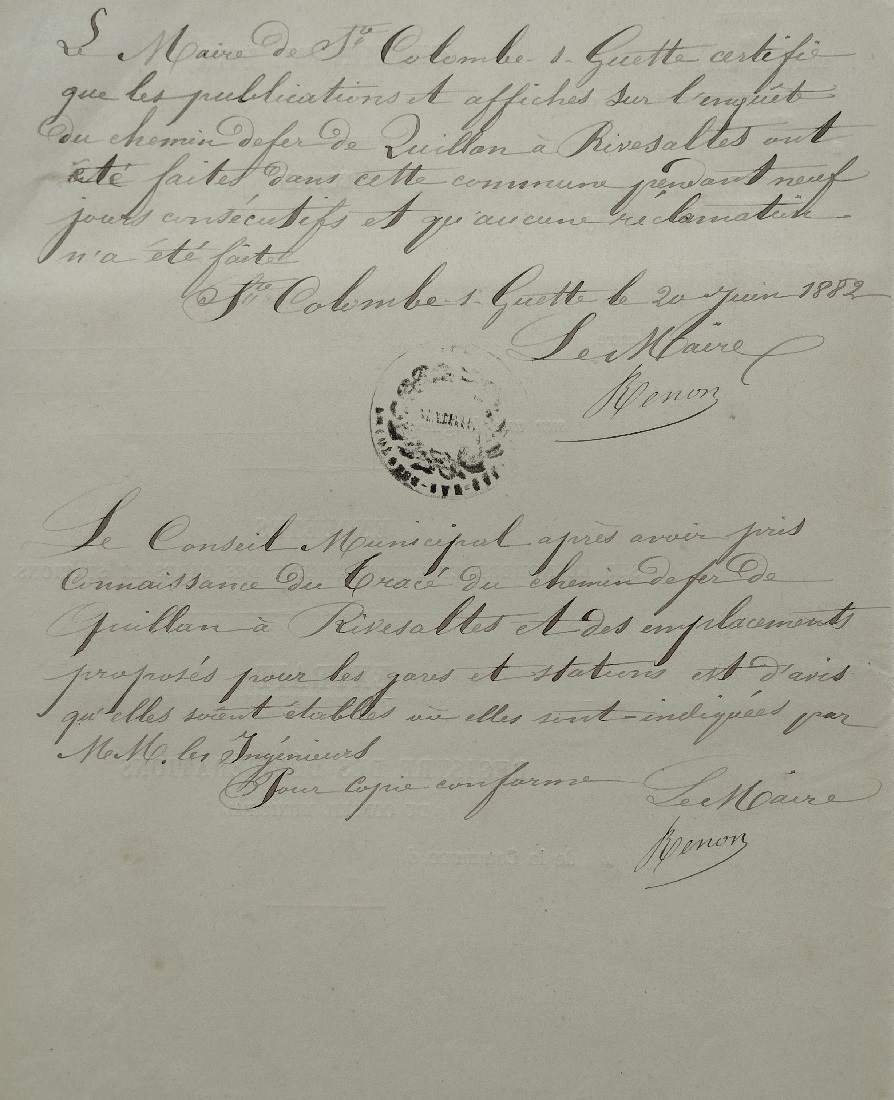 Le Maire de Ste Colombe-s-Guette certifie
que les publications et affiches sur l'enquête
du chemin de fer de Quillan à Rivesaltes ont
été faites dans cette commune pendant neuf
jours consécutifs et qu'aucune réclamation
n'a été faite
Ste Colombe-s-Guette le 20 Juin 1882
Le Maire
Renon
MAIRIE
Le Conseil Municipal après avoir pris
connaissance du tracé du chemin de fer de
Quillan à Rivesaltes et des emplacements
proposés pour les gares et stations est d'avis
qu'elles soient établies où elles sont indiquées par
M.M. les Ingénieurs
Pour copie conforme
Le Maire
Renon